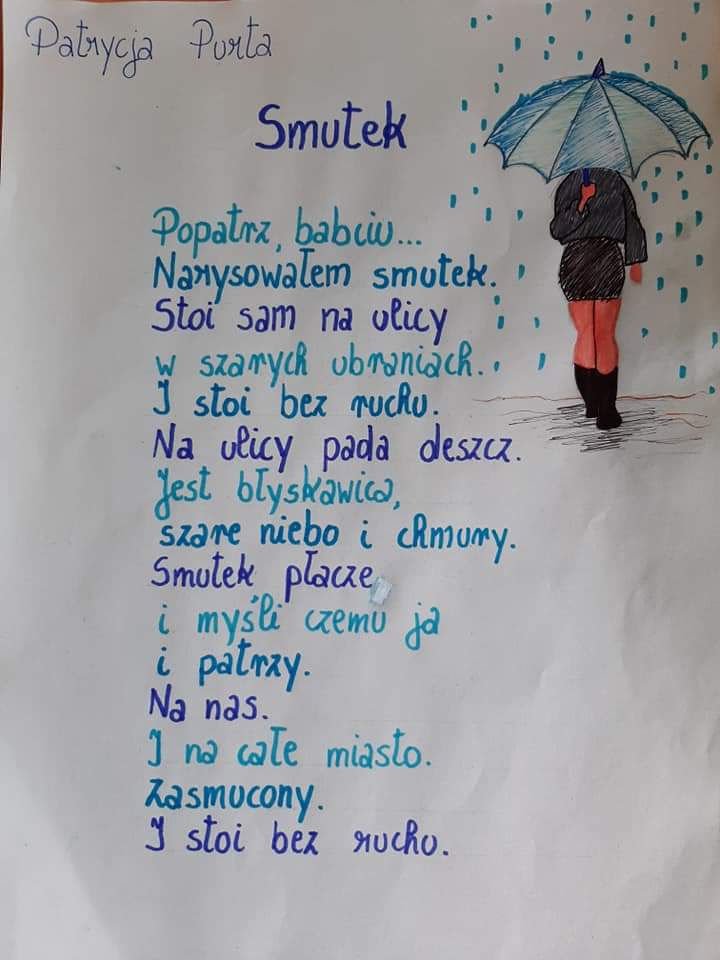 Patrycja Purta
Smutek
Popatrz, babciu...
Narysowałem smutek.
Stoi sam na ulicy
w szarych ubraniach.
I stoi bez ruchu.
Na ulicy pada deszcz.
Jest błyskawica,
szare niebo i chmury.
Smutek płacze
i myśli czemu ja
i patrzy.
Na nas.
I na całe miasto.
Zasmucony.
I stoi bez ruchu.